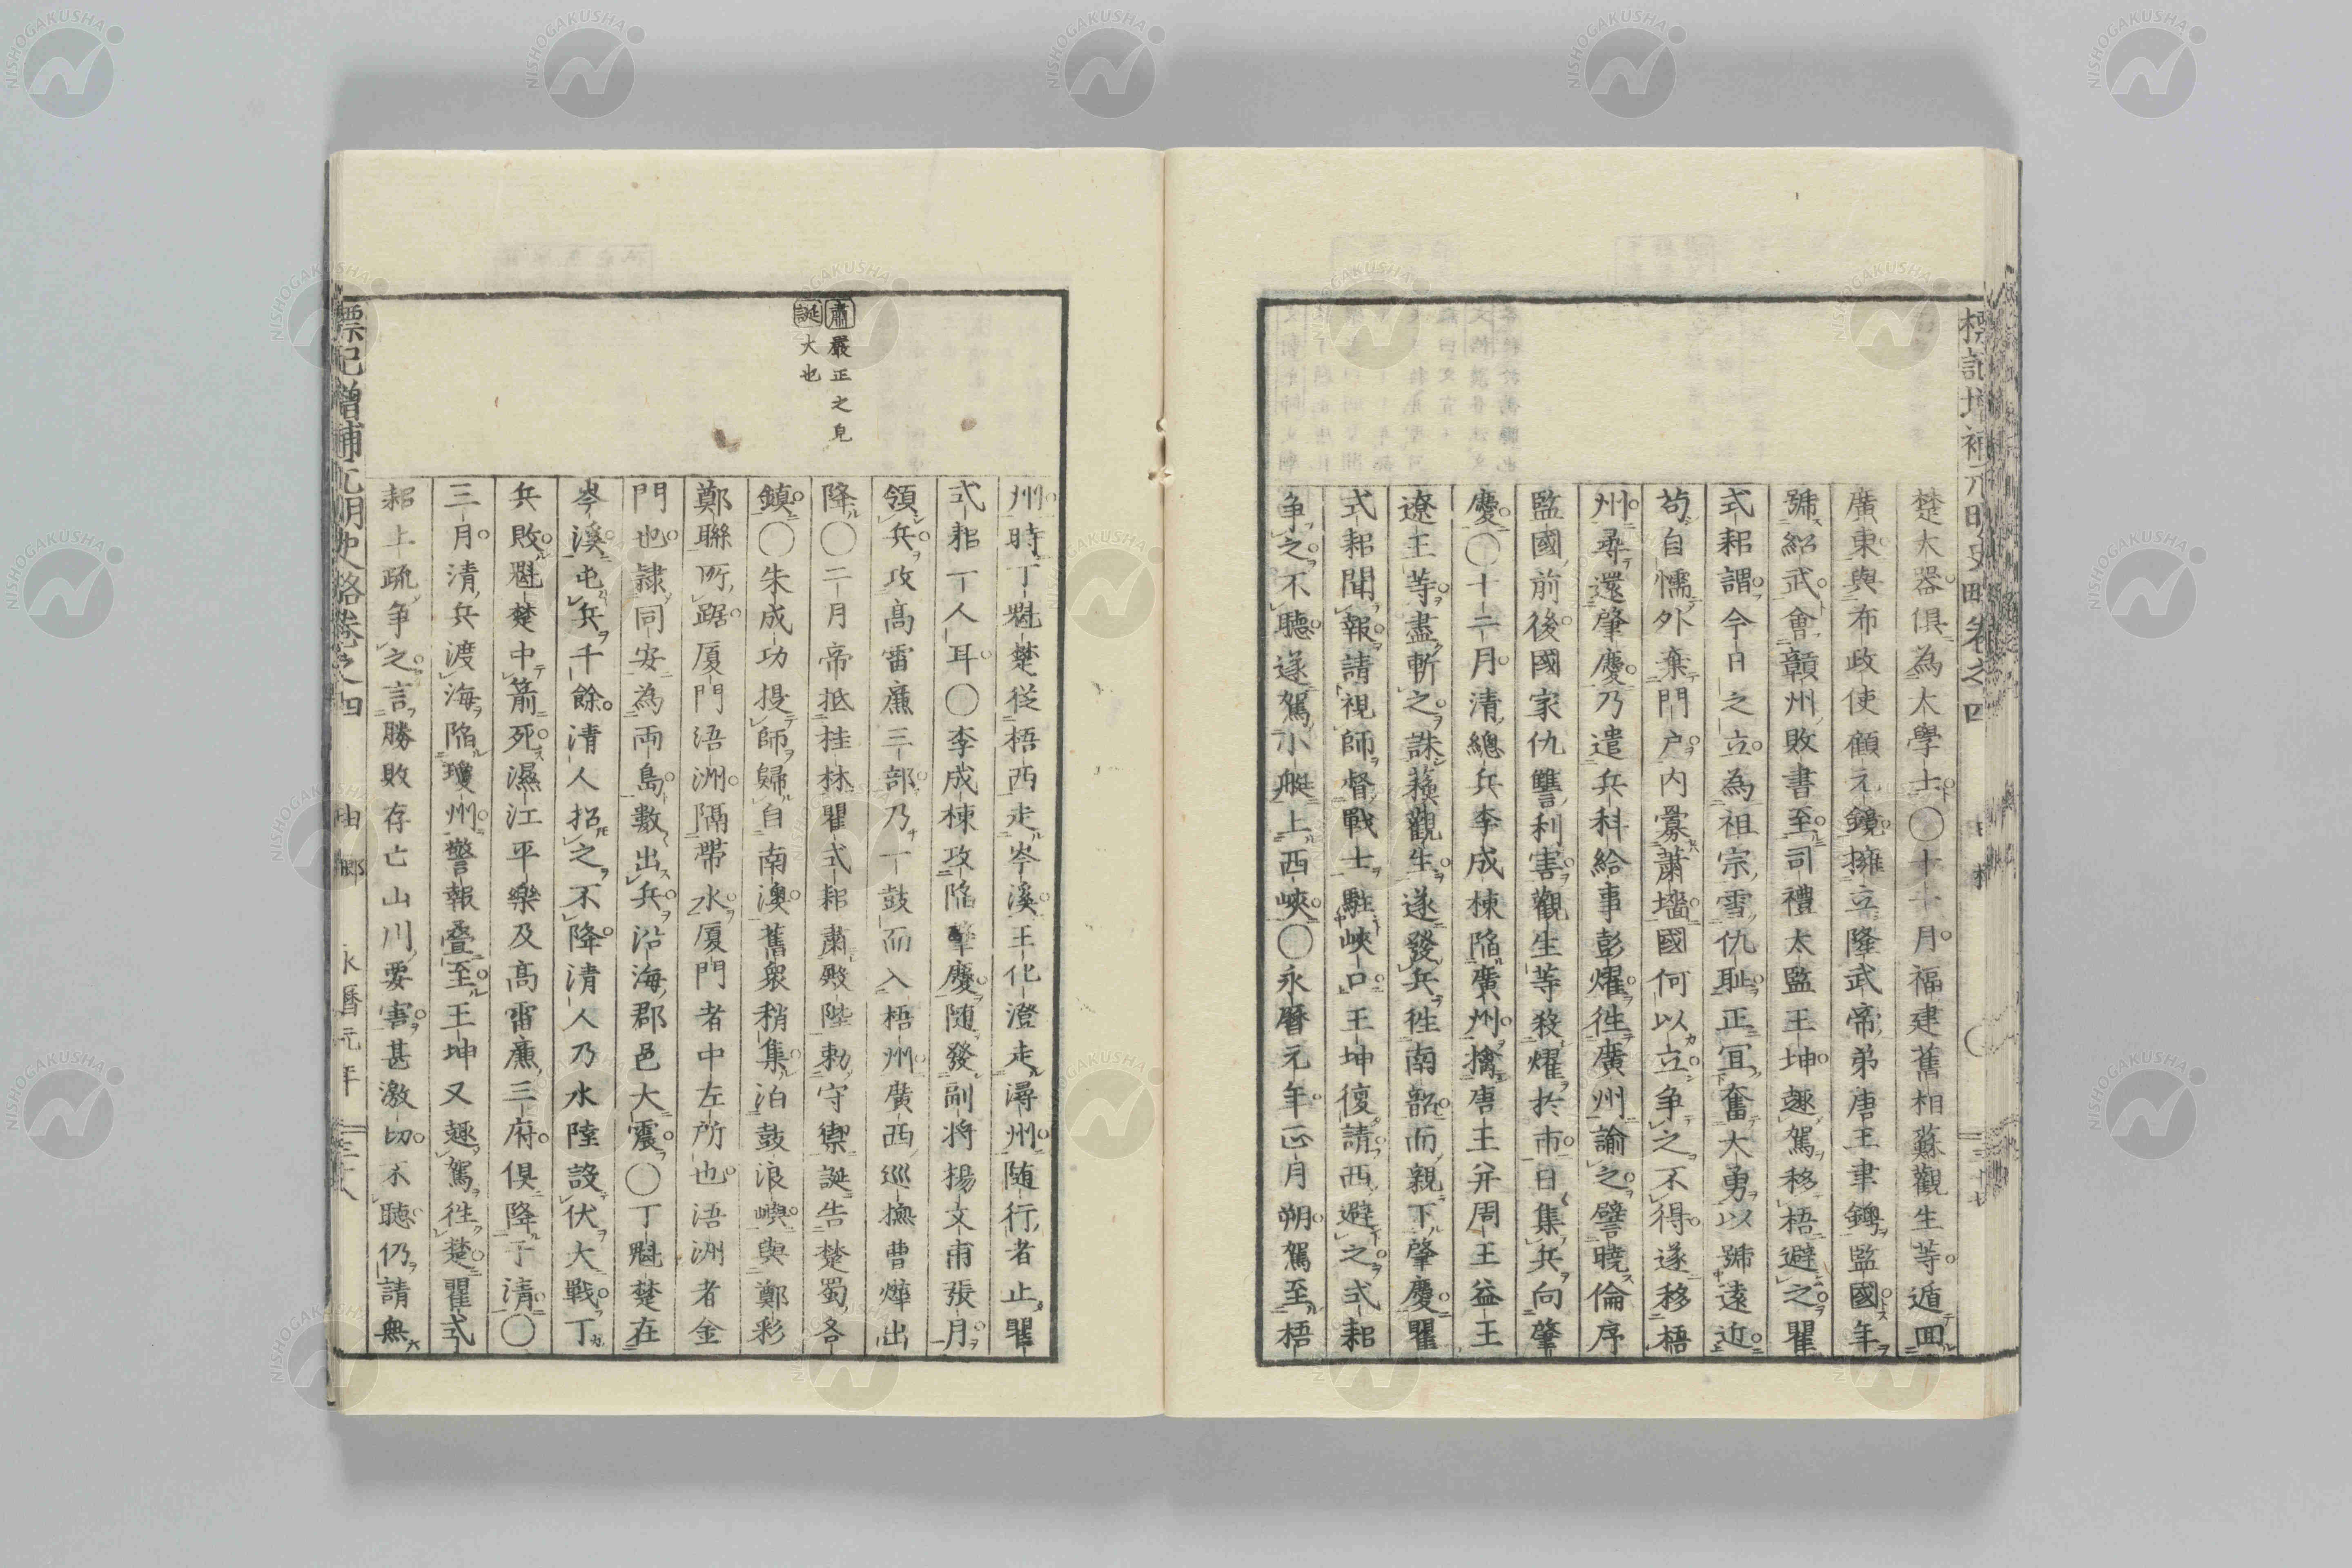 楚大器俱為大學士〇十一月福建舊相蘇觀生等遁回
廣東與布政使顧元鏡擁立隆武帝弟唐王聿鐭監國年
號紹武會贛州敗書至司禮太監王坤趣駕移梧避之瞿
式耜謂今日之立為祖宗雪仇耻正宜奮大勇以號遠近
苟自懦外棄門户内釁蕭墻國何以立争之不得遂移梧
州尋還肇慶乃遣兵科給事彭燿徃廣州諭之譬曉倫序
監國前後國家仇讐利害觀生等殺燿於市日集兵向肇
慶〇十二月清總兵李成棟陷廣州擒唐王并周王益王
遼王等盡斬之誅蘓觀生遂發兵徃南韶而親下肇慶瞿
式耜聞報請視師督戰士駐峽口王坤復請西避之式耜
争之不聽遂駕小艇上西峽〇永曆元年正月朔駕至梧
州時丁魁楚從梧西走岑溪王化澄走潯州随行者止瞿
式耜一人耳〇李成棟攻陷肇慶随發副将揚文甫張月
領兵攻高雷廉三部乃一鼓而入梧州廣西巡撫曹燁出
降〇二月帝抵桂林瞿式耜肅殿陛勅守禦誕告楚蜀各
鎮〇朱成功提師歸自南澳舊衆稍集泊鼓浪嶼與鄭彩
鄭聯所踞厦門浯洲隔帶水厦門者中左所也浯洲者金
門也隷同安為両島數出兵沿海郡邑大震〇丁魁楚在
岑溪屯兵千餘清人招之不降清人乃水陸設伏大戰丁
兵敗魁楚中箭死濕江平樂及高雷廉三府俱降于清〇
三月清兵渡海陷瓊州警報叠至王坤又趣駕徃楚瞿式
耜上疏争之言勝敗存亡山川要害甚激切不聽仍請無
肅嚴正之皃
誕大也
標記增補元明史略卷之四 永曆元年
NISHOGAKUSHA